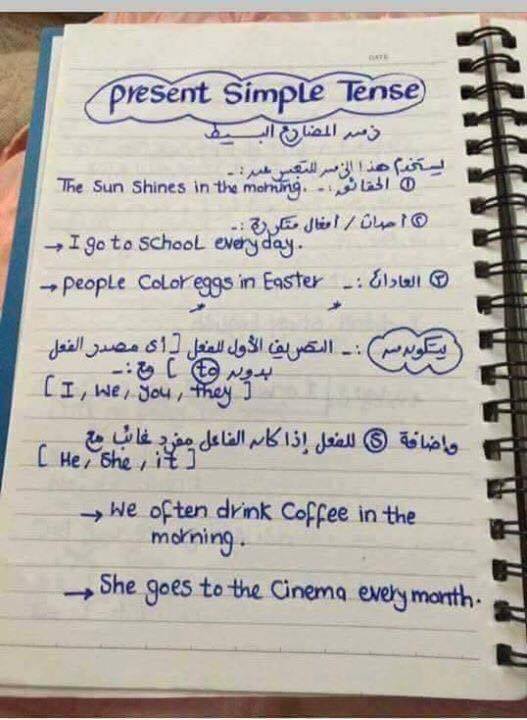 DATE
Present Simple Tense
زمن المضارع البسيط
يستخدم هذا الزمن للتعبير عن :-
① الحقائق :- The Sun Shines in the morning.
② احداث / افعال متكررة :-
→ I go to School every day.
③ العادات :- → People Color eggs in Easter
يتكون من :- التصريف الأول للفعل [ أي مصدر الفعل
بدون to ] مع :-
[ I, we, you, they ]
واضافة S للفعل إذا كان الفاعل مفرد غائب مع
[ He, She, it ]
→ We often drink Coffee in the
morning.
→ She goes to the Cinema every month.